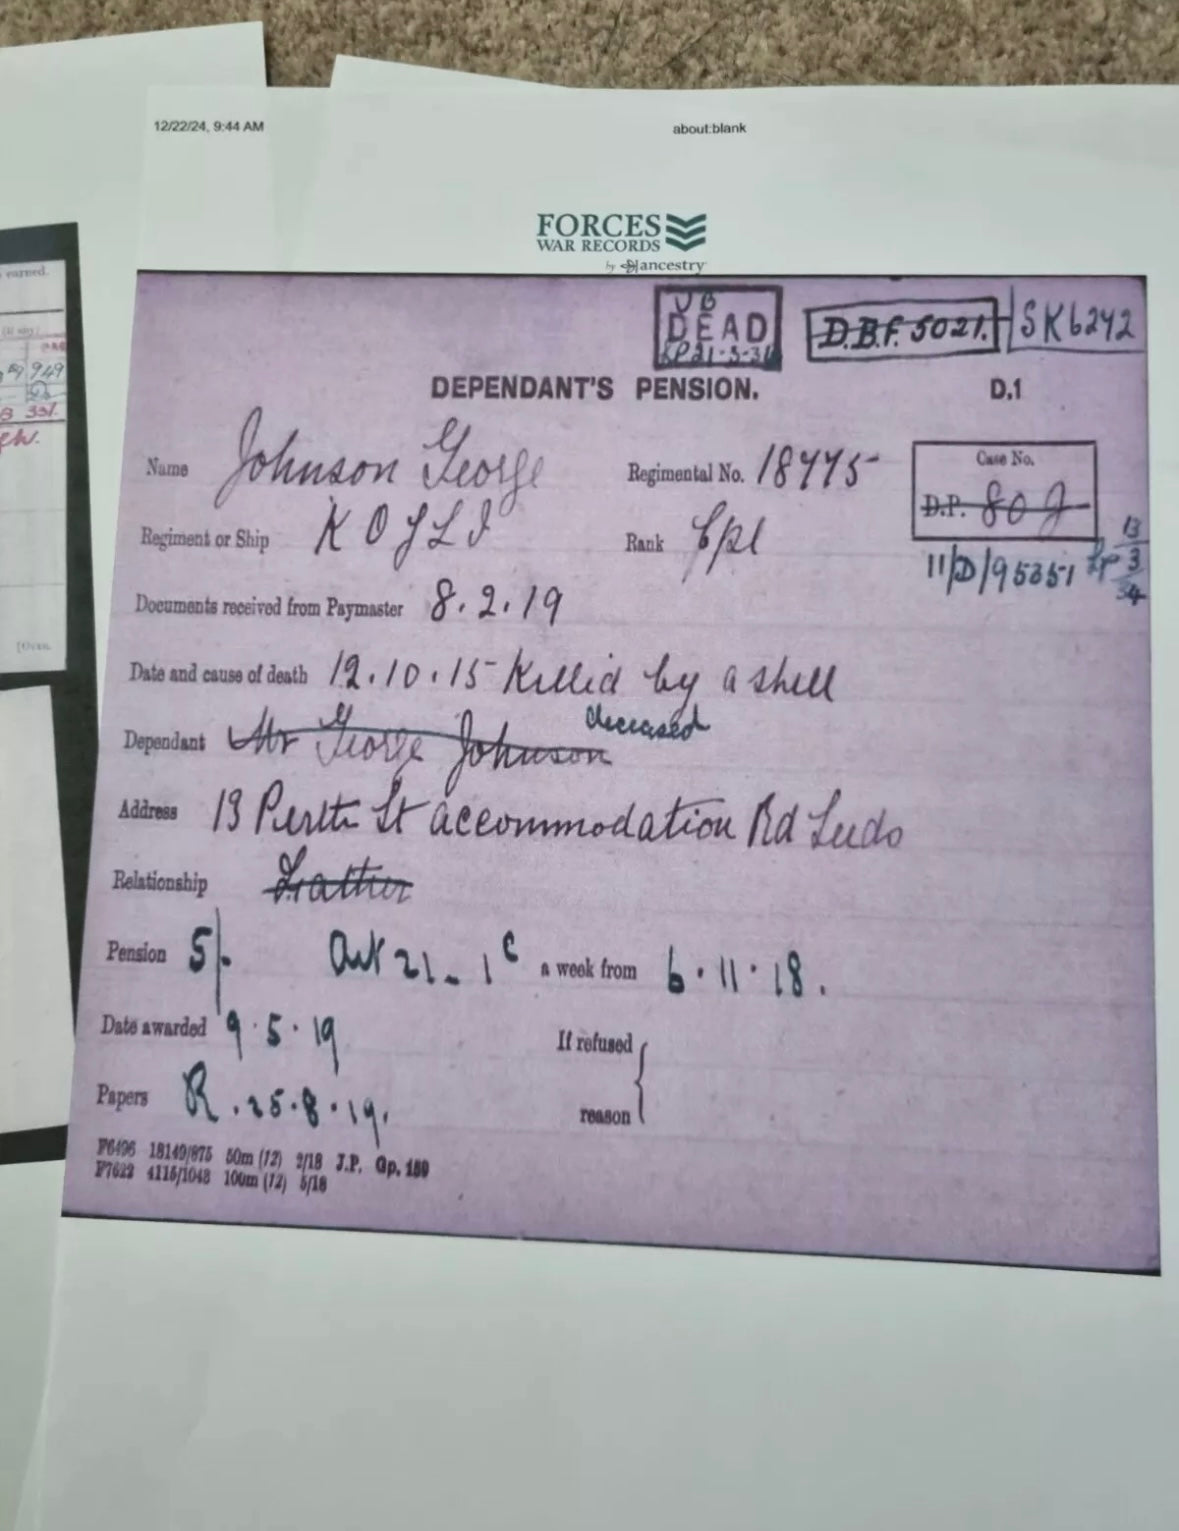 12/22/24, 9:44 AM
about:blank
FORCES
WAR RECORDS
by ancestry
DEAD
D.B.F. 5021.
SK6242
DEPENDANT'S PENSION.
D.1
Name Johnson George
Regimental No. 18475
Case No.
D.P. 80
Regiment or Ship KOYLI
Rank Cpl
11/D/95351
13
3
34
Documents received from Paymaster 8.2.19
Date and cause of death 12.10.15 Killed by a shell
deceased
Dependant Mr George Johnson
Address 13 Perth St accommodation Rd Leeds
Relationship Father
Pension 5/- Art 21-1c a week from 6.11.18.
Date awarded 9.5.19
If refused
reason
Papers R.25.8.19.
F6496 18149/875 50m (12) 2/18 J.P. Gp. 159
F7622 4115/1048 100m (12) 5/18
earned.
949
[Over.